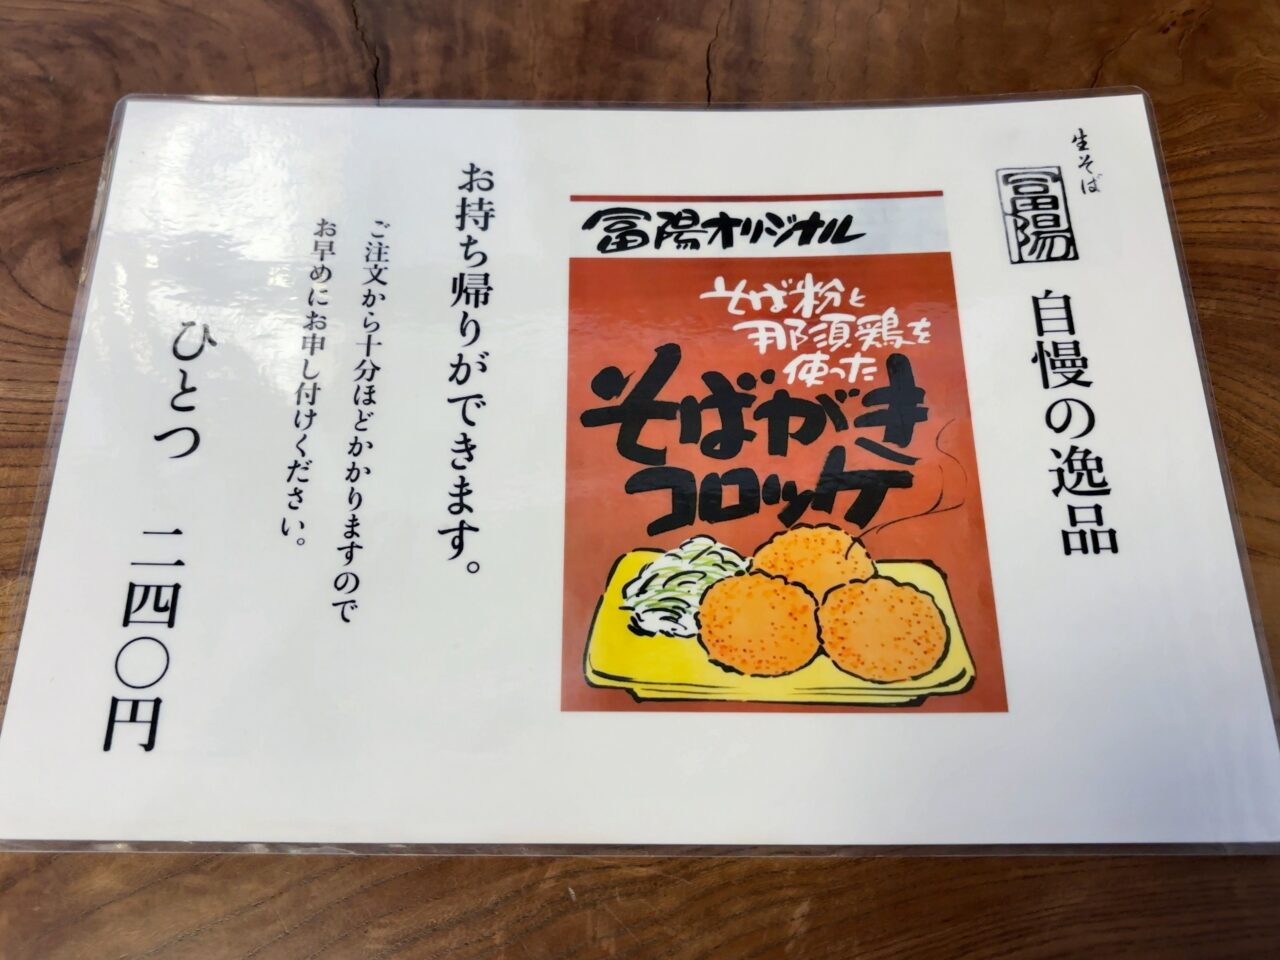 生そば
冨陽
自慢の逸品
冨陽オリジナル
そば粉と
那須鶏を
使った
そばがき
コロッケ
お持ち帰りができます。
ご注文から十分ほどかかりますので
お早めにお申し付けください。
ひとつ 二四〇円